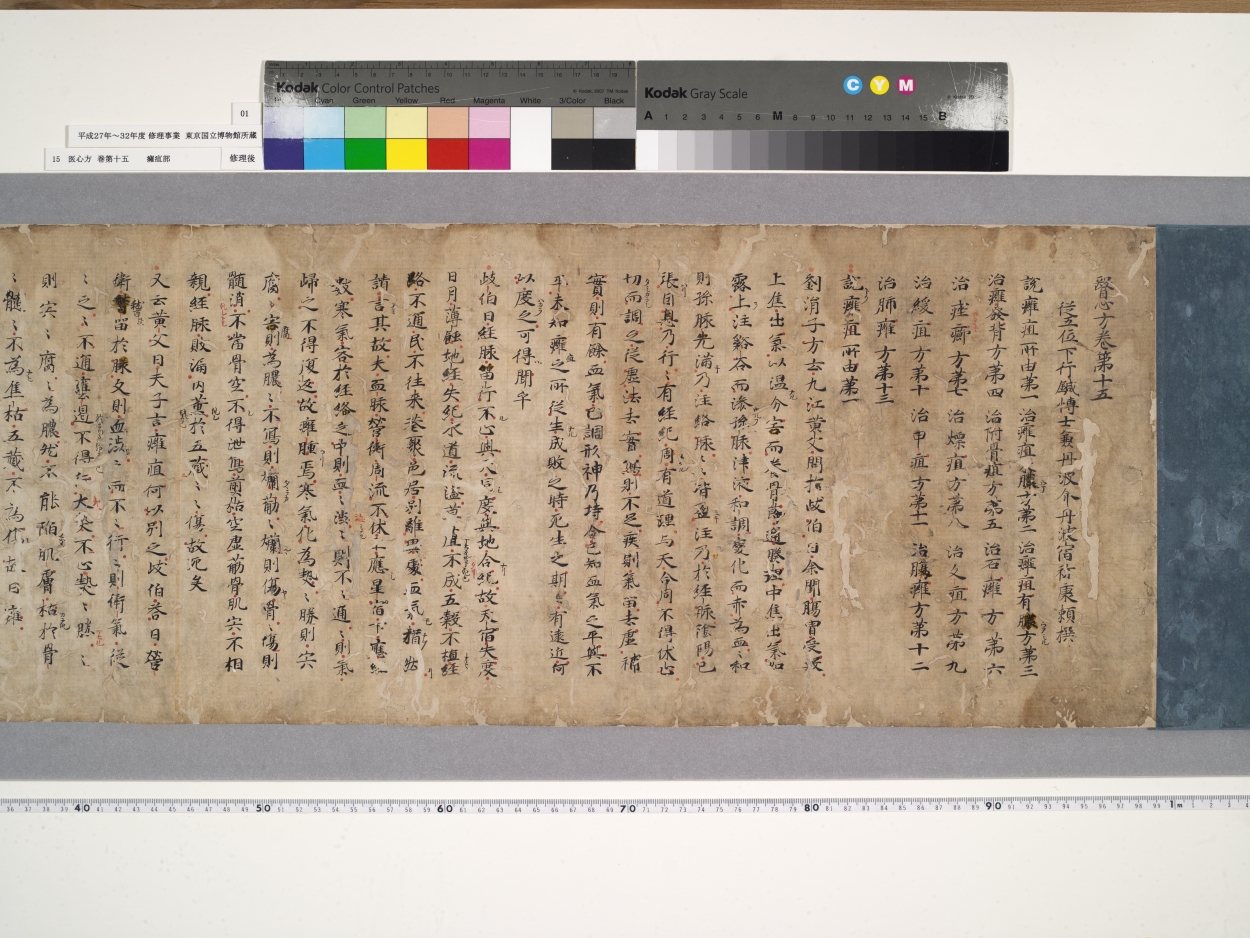 Kodak Color Control Patches
Cyan Green Yellow Red Magenta White 3/Color Black
Kodak Gray Scale
C Y M
A 1 2 3 4 5 6 M 8 9 10 11 12 13 14 15 B
01
平成27年〜32年度 修理事業 東京国立博物館所蔵
15 医心方 巻第十五 癰疽部
修理後
醫心方卷第十五
從五位下行鍼博士兼丹波介丹波宿祢康頼撰
說癰疽所由第一 治癰疽方第二 治癰疽有膿方第三
治癰發背方第四 治附骨疽方第五 治石癰方第六
治痤癤方第七 治熛疽方第八 治久疽方第九
治緩疽方第十 治甲疽方第十一 治腸癰方第十二
治肺癰方第十三
說癰疽所由第一
劉涓子方云九江黄父問於歧伯曰余聞腸胃受穀
上焦出氣以温分宍而養骨節通腠理中焦出氣如
露上注谿谷而滲孫脉津液和調變化而赤為血々和
則孫脉先滿乃注絡脉々々皆盈注乃於経脉陰陽已
張因息乃行々有経紀周有道理与天合同不得休止
切而調之從虚法去實瀉則不足疾則氣留去虚補
實則有餘血氣已調形神乃持余已知血氣之平與不
平未知癰之所從生成敗之時死生之期或有遠近何
以度之可得聞乎
歧伯曰経脉留行不止與天同度與地合紀故天宿失度
日月薄蝕地経失紀水道流溢草苴不成五穀不植経
路不通民不往来巷聚邑居別離異處血氣猶然
請言其故夫血脉營衛周流不休上應星宿下應経
數寒氣客於経絡之中則血々澁々則不々通々則氣
歸之不得復返故癰腫焉寒氣化為熱々勝則宍
腐々宍則為膿々不寫則爛筋々爛則傷骨々傷則
髄消不當骨空不得泄寫煎枯空虚筋骨肌宍不相
親経脉敗漏內薫於五蔵々々傷故死矣
又云黄父曰夫子言癰疽何以別之歧伯答曰營
衛留於経脉之則血澁々而不々行々則衛氣從
之々不通壅遏不得行大熱不止熱々勝々
則宍々腐々為膿然不能陷肌膚枯於骨
髓々不為焦枯五蔵不為傷故曰癰